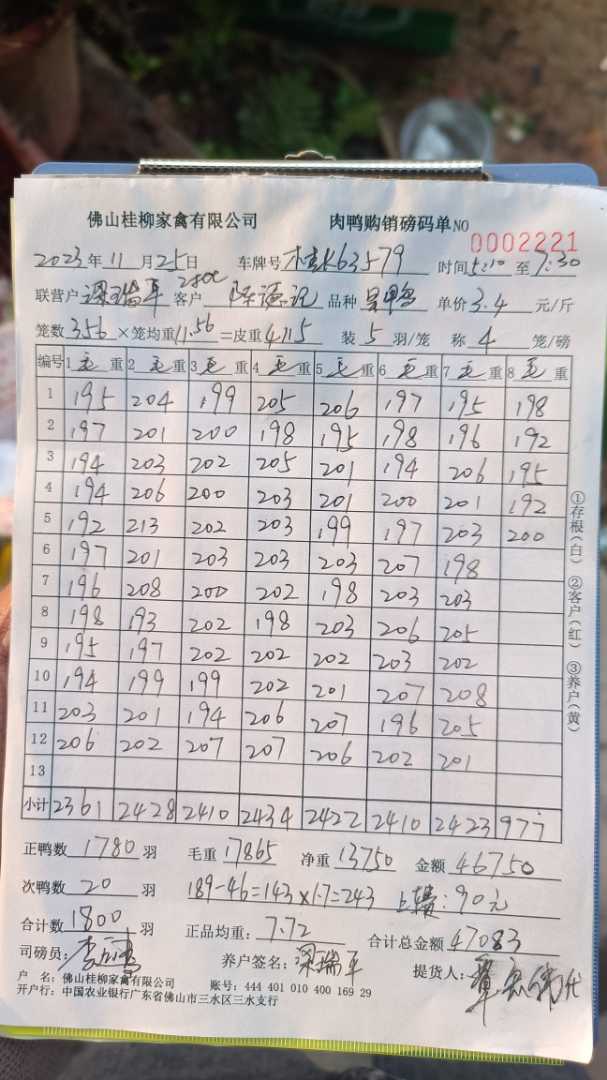 佛山桂柳家禽有限公司 肉鸭购销磅码单 NO 0002221
2023年11月25日 车牌号 桂K63579 时间5:10至7:30
联营户 梁瑞平 客户 陈 记 品种 鸭 单价3.4元/斤
笼数356×笼均重11.56=皮重4115 装5羽/笼 称4笼/磅
编号 1毛重 2毛重 3毛重 4毛重 5毛重 6毛重 7毛重 8毛重
1 195 204 199 205 206 197 195 198
2 197 201 200 198 195 198 196 192
3 194 203 202 205 201 194 206 195
4 194 206 200 203 201 200 201 192
5 192 213 202 203 199 197 203 200
6 197 201 203 203 203 207 198
7 196 208 200 202 198 203 203
8 198 193 202 198 203 206 205
9 195 197 202 202 202 203 202
10 194 199 199 202 201 207 208
11 203 201 194 206 207 196 205
12 206 202 207 207 206 202 201
13
小计 2361 2428 2410 2434 2422 2410 2423 977
①存根(白) ②客户(红) ③养户(黄)
正鸭数 1780羽 毛重 17865 净重 13750 金额 46750
次鸭数 20羽 189-46=143×1.7=243 上 :90元
合计数 1800羽 正品均重: 7.72 合计总金额 47083
司磅员: 养户签名: 梁瑞平 提货人:
户 名: 佛山桂柳家禽有限公司 账号: 444 401 010 400 169 29
开户行: 中国农业银行广东省佛山市三水区三水支行